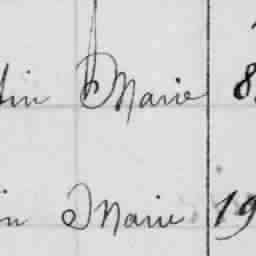 tin Marie 8
in Marie 19